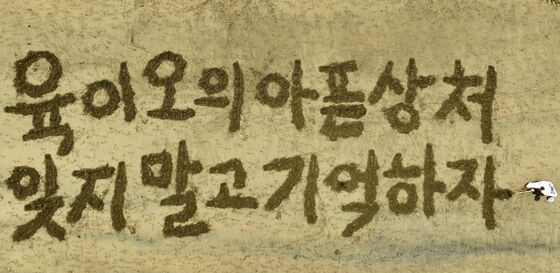 육이오의 아픈 상처
잊지 말고 기억하자